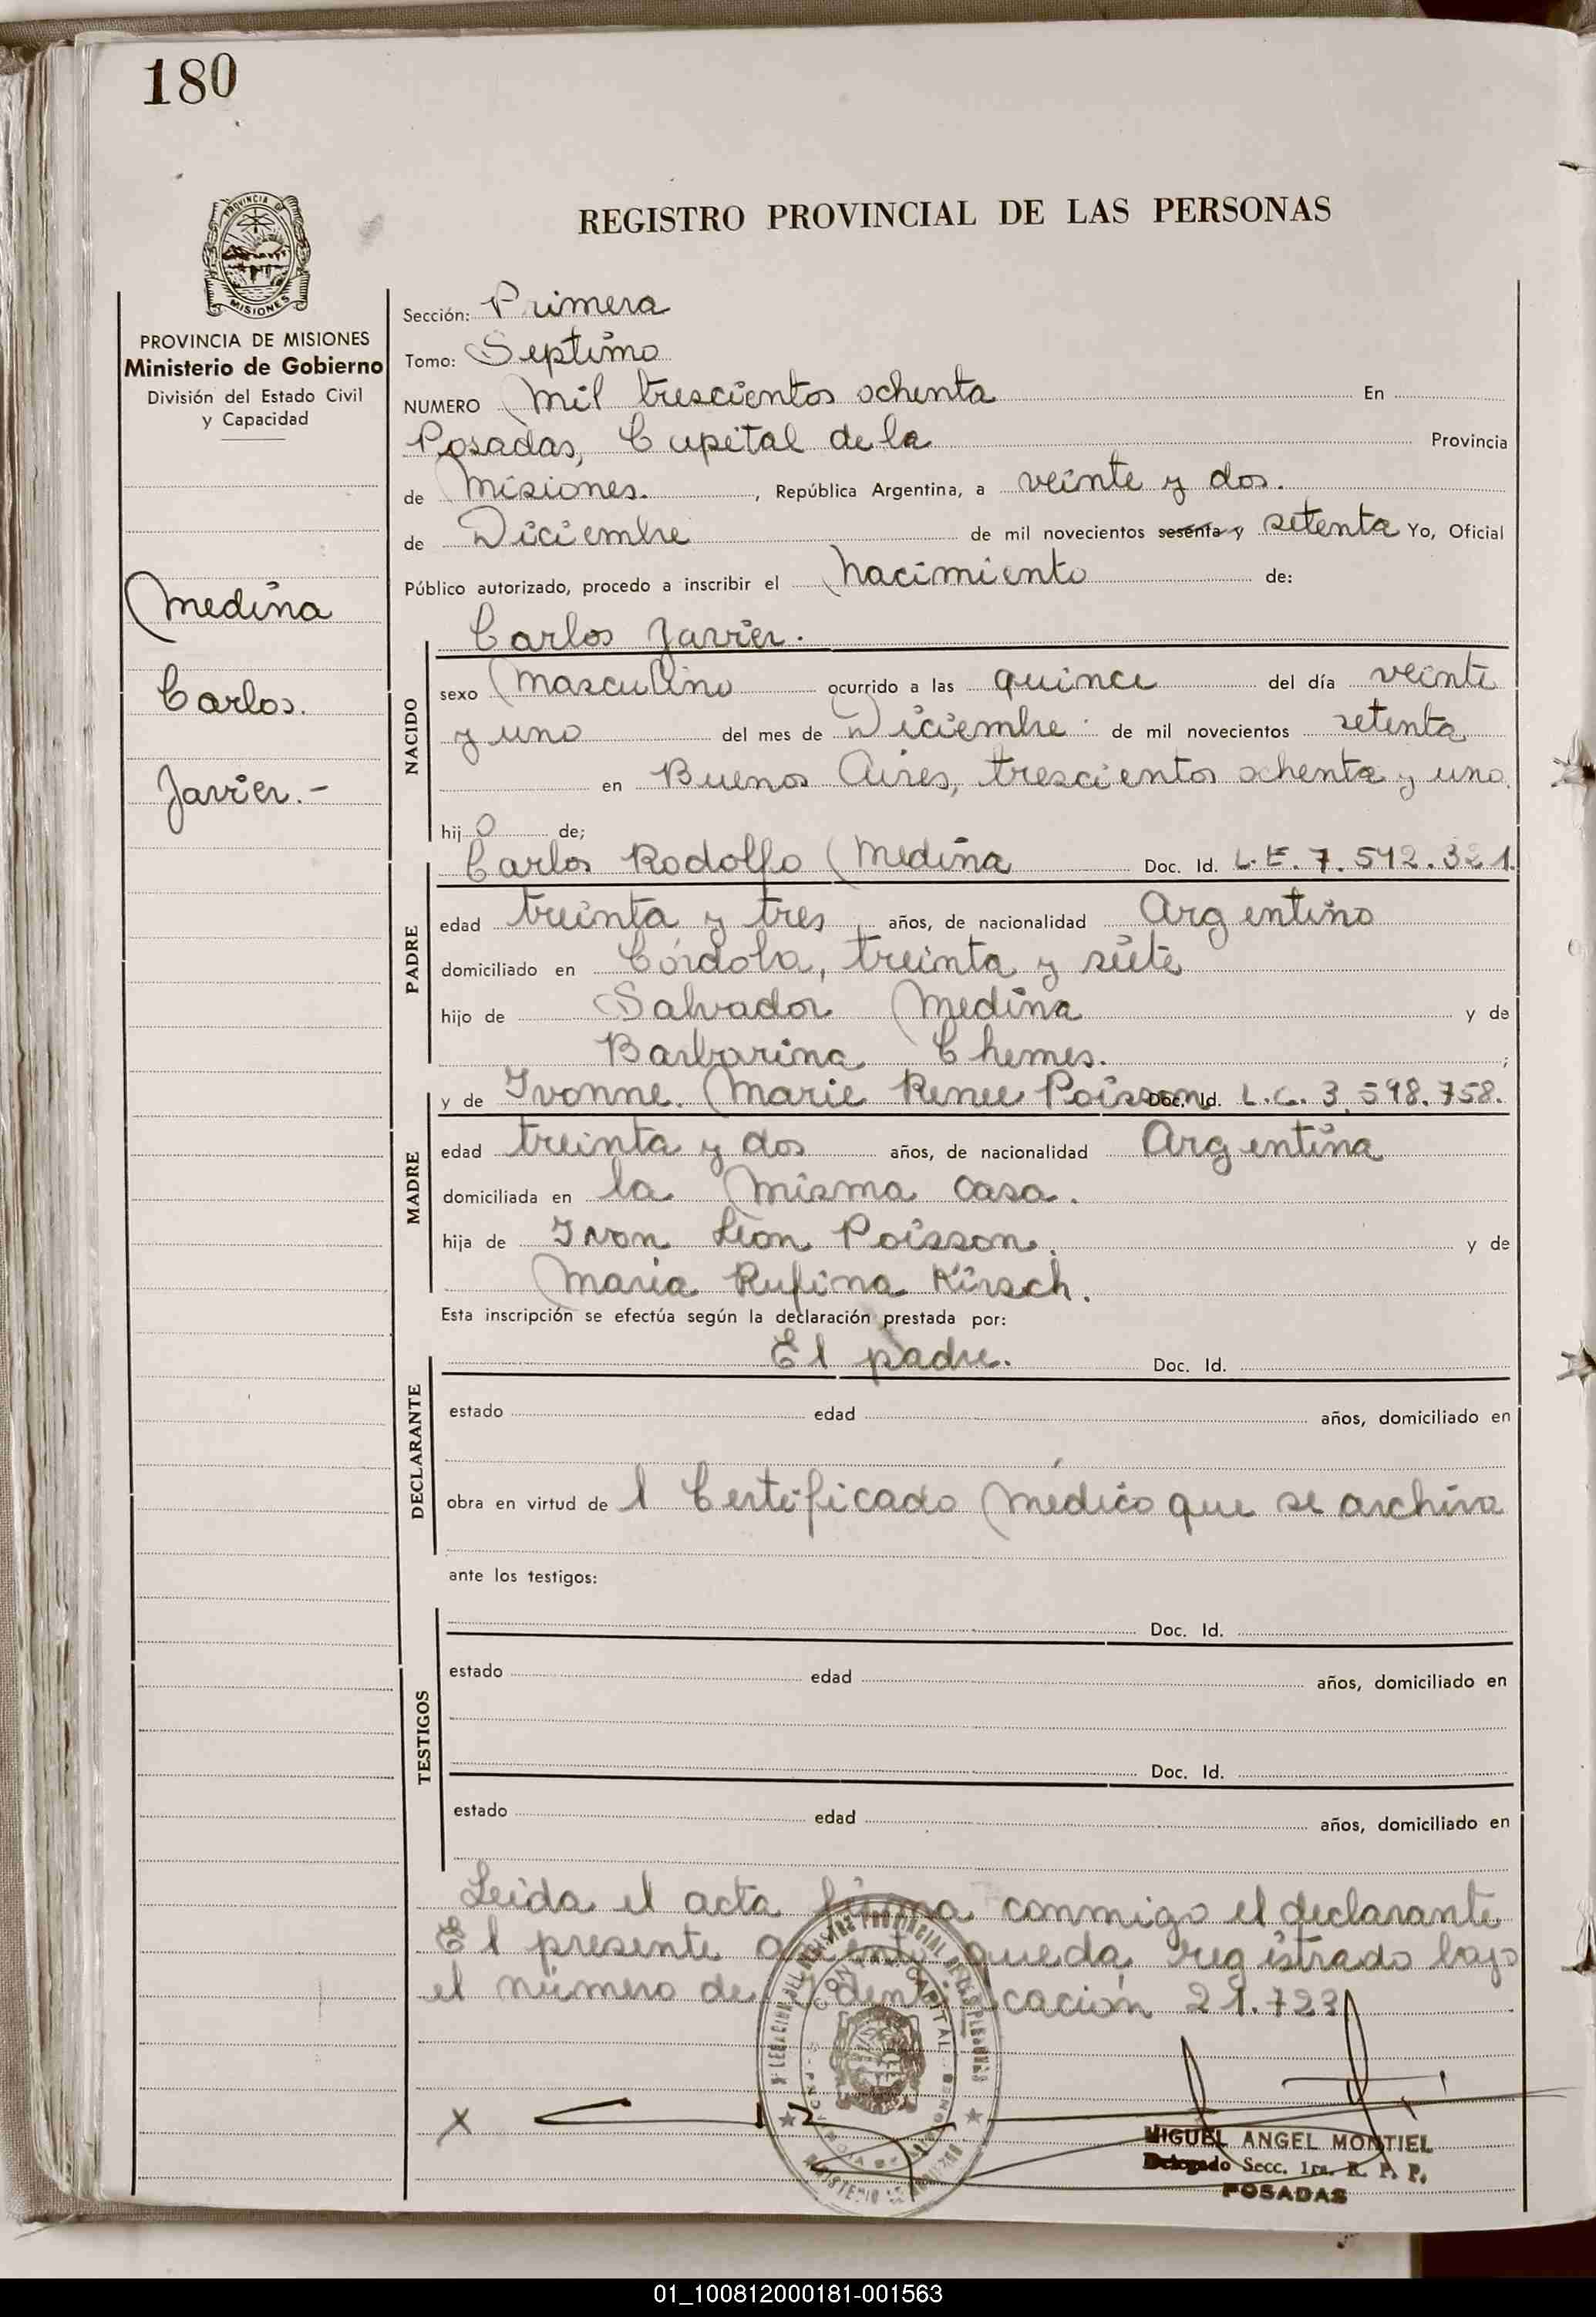 180
PROVINCIA DE
MISIONES
REGISTRO PROVINCIAL DE LAS PERSONAS
PROVINCIA DE MISIONES
Ministerio de Gobierno
División del Estado Civil
y Capacidad
Medina
Carlos.
Javier.-
Sección: Primera
Tomo: Septimo
NUMERO Mil trescientos ochenta En
Posadas, Capital de la Provincia
de Misiones. , República Argentina, a veinte y dos.
de Diciembre de mil novecientos sesenta y setenta Yo, Oficial
Público autorizado, procedo a inscribir el Nacimiento de:
Carlos Javier.
NACIDO
sexo Masculino ocurrido a las quince del día veinte
y uno del mes de Diciembre de mil novecientos setenta
en Buenos Aires, trescientos ochenta y uno.
hij o de;
Carlos Rodolfo Medina Doc. Id. L.E. 7.542.321.
PADRE
edad treinta y tres años, de nacionalidad Argentino
domiciliado en Córdoba, treinta y siete
hijo de Salvador Medina y de
Barbarina Chemes. ;
y de Ivonne. Marie Renee Poisson Doc. Id. L.C. 3.598.758.
MADRE
edad treinta y dos años, de nacionalidad Argentina
domiciliada en la misma casa.
hija de Ivon Leon Poisson. y de
Maria Rufina Kirsch.
Esta inscripción se efectúa según la declaración prestada por:
El padre. Doc. Id.
DECLARANTE
estado edad años, domiciliado en
obra en virtud de l Certificado Médico que se archiva
ante los testigos:
Doc. Id.
TESTIGOS
estado edad años, domiciliado en
Doc. Id.
estado edad años, domiciliado en
Leida el acta firma conmigo el declarante
El presente asiento queda registrado bajo
el número de Identificación 21.723
X
MIGUEL ANGEL MONTIEL
Delegado Secc. 1ra. R. P. P.
POSADAS
01_100812000181-001563